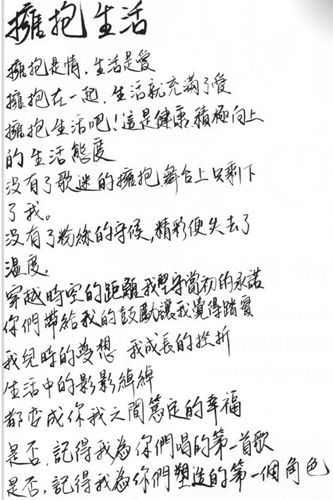 擁抱生活
擁抱是情，生活是愛
擁抱在一起，生活就充滿了愛
擁抱生活吧！這是健康、積極向上
的生活態度
沒有了歌迷的擁抱，舞台上只剩下
了我。
沒有了粉絲的守候，精彩便失去了
溫度。
穿越時空的距離我堅守當初的承諾
你們帶給我的鼓勵讓我覺得踏實
我兒時的夢想 我成長的挫折
生活中的影影綽綽
都變成你我之間篤定的幸福
是否，記得我為你們唱的第一首歌
是否，記得我為你們塑造的第一個角色